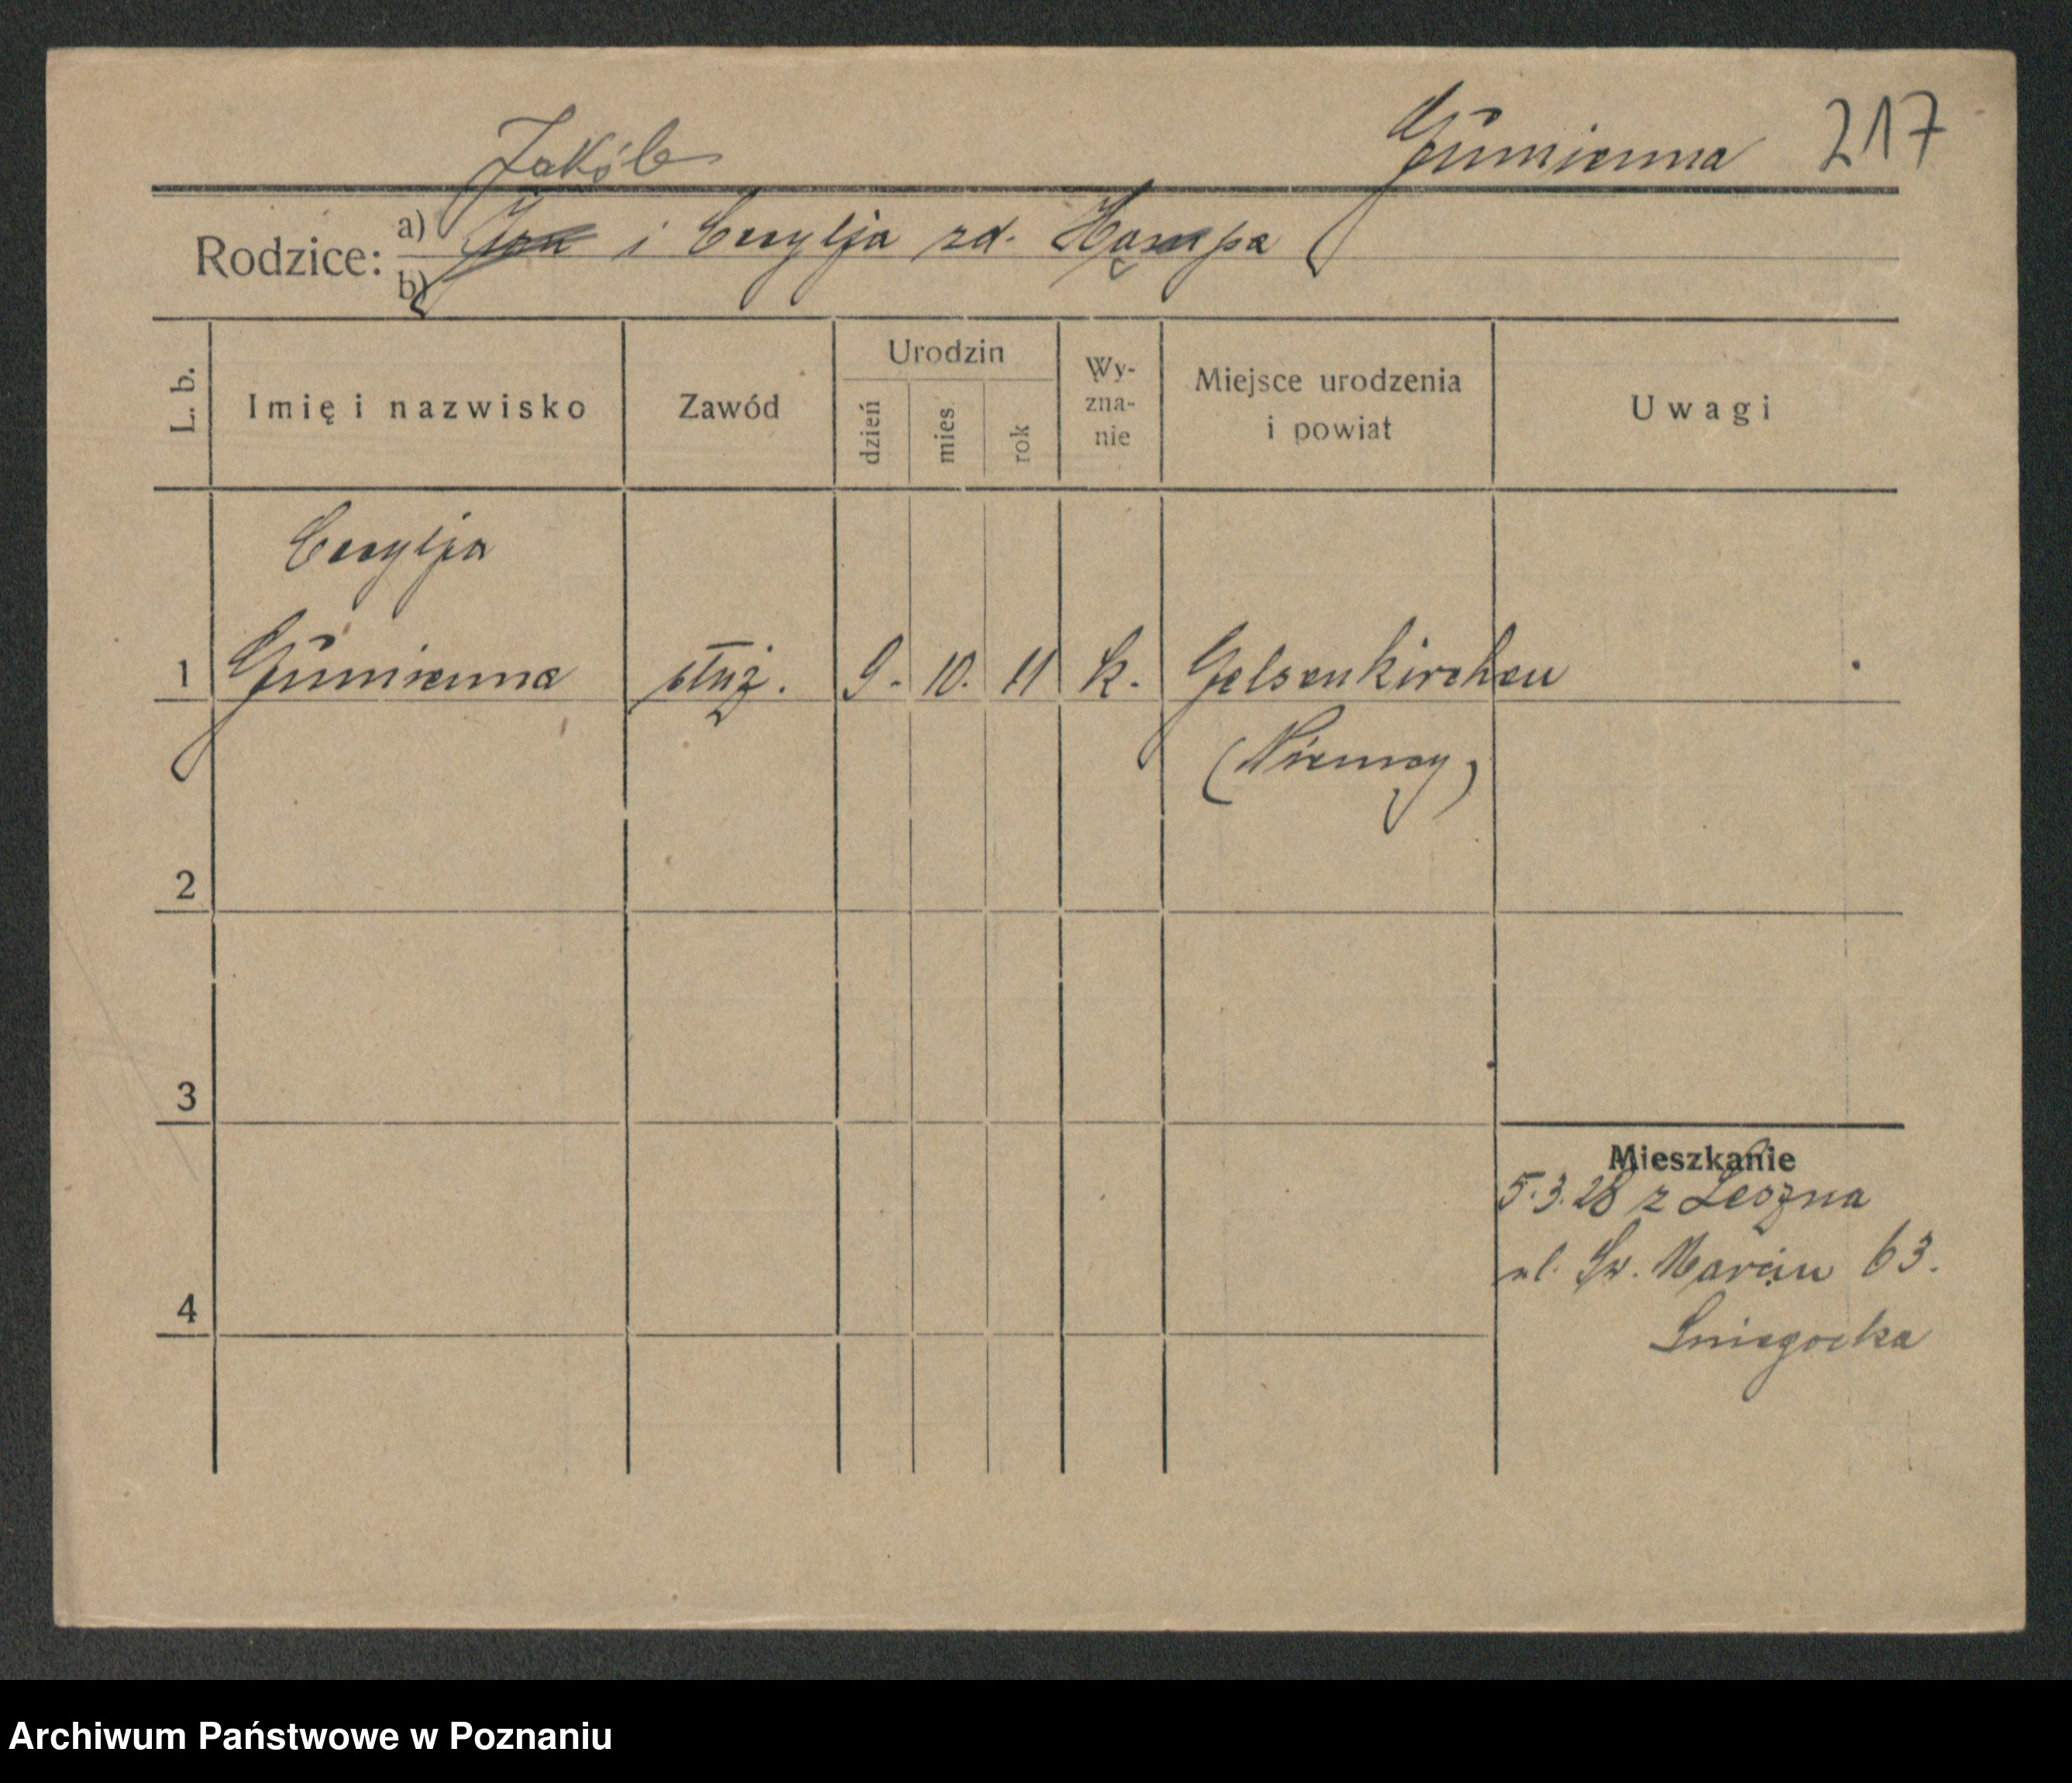 Jakób
Gumienna 217
Rodzice: a) Jan i Cecylja zd. Kąmpa
b)
L. b. Imię i nazwisko Zawód Urodzin dzień mies rok Wy-zna-nie Miejsce urodzenia i powiat Uwagi
Cecylja
1 Gumienna służ. 9. 10. 11 k. Gelsenkirchen
(Niemcy)
2
3
Mieszkanie
5.3.28 z Leszna
ul. Św. Marcin 63.
4 Śniegocka
Archiwum Państwowe w Poznaniu